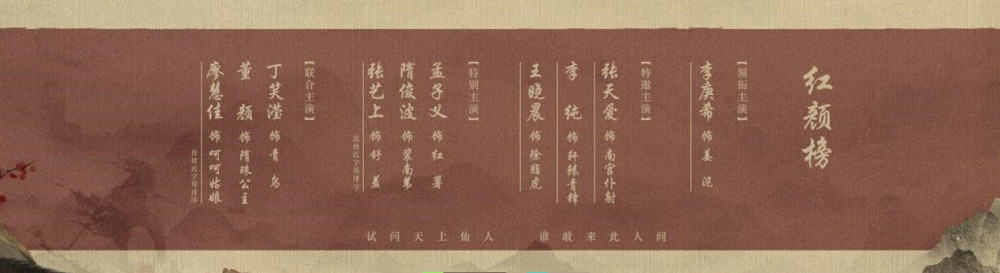 红颜榜
【领衔主演】
李庚希 饰 姜泥
【特邀主演】
张天爱 饰 南宫仆射
李纯 饰 轩辕青锋
王晓晨 饰 徐脂虎
【特别主演】
孟子义 饰 红薯
隋俊波 饰 裴南苇
张艺上 饰 舒羞
按姓氏字母排序
【联合主演】
丁笑滢 饰 青鸟
董颜 饰 隋珠公主
廖慧佳 饰 呵呵姑娘
按姓氏字母排序
试问天上仙人 谁敢来此人间